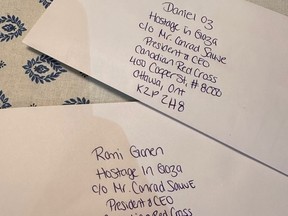 Daniel Oz
Hostage in Gaza
c/o Mr. Conrad Sauvé
President & CEO
Canadian Red Cross
400 Cooper St, # 8000
Ottawa, Ont
K2P 2H8
Rami Ganen
Hostage in Gaza
c/o Mr. Conrad Sauvé
President & CEO
Canadian Red Cross